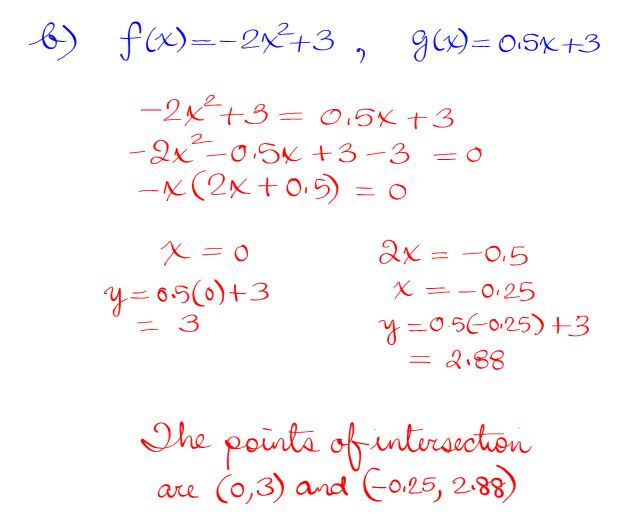 b) f(x)=-2x²+3 , g(x)=0.5x+3
-2x²+3 = 0.5x+3
-2x²-0.5x+3-3 = 0
-x(2x+0.5) = 0
x = 0
y=0.5(0)+3
= 3
2x = -0.5
x = -0.25
y=0.5(-0.25)+3
= 2.88
The points of intersection
are (0,3) and (-0.25, 2.88)